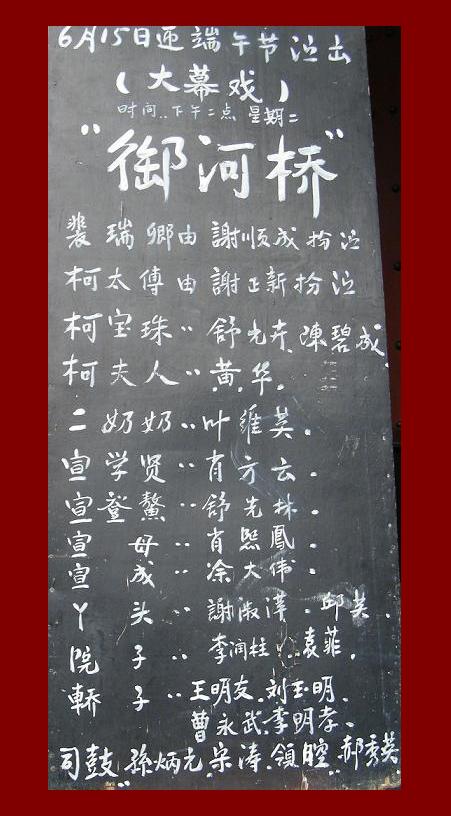 6月15日迎端午节泣出
(大幕戏)
时间..下午二点 星期二
"御河桥"
裴瑞卿由 謝顺成扮泣
柯太傅由 謝正新扮泣
柯宝珠.. 舒光卉. 陳碧成.
柯夫人.. 黄华.
二奶奶.. 叶维英.
宣学贤.. 肖方云.
宣登鳌.. 舒先林.
宣母.. 肖熙鳳.
宣成.. 涂大伟.
丫头.. 謝淑萍. 邱芙.
院子.. 李润柱.. 袁菲.
轎子.. 王明友. 刘玉明.
曾永武. 李明孝.
司鼓 孫炳元. 宋涛. 領腔 郝秀英